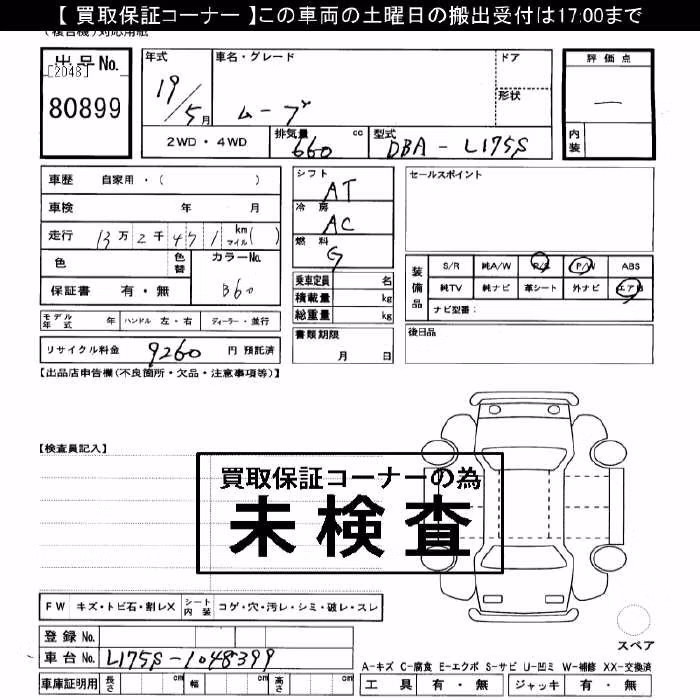 【 買取保証コーナー 】この車両の土曜日の搬出受付は17:00まで
(複合機)対応用紙
出品No.
[2048]
80899
年式 19/5月
車名・グレード ムーブ
ドア
形状
評価点 —
内装
2WD・4WD
排気量 660 cc
型式 DBA-L175S
車歴 自家用・( )
車検 年 月
走行 13万2千471 km マイル( )
色 色替 カラーNo. B60
保証書 有・無
シフト AT
冷房 AC
燃料 G
乗車定員 名
積載量 kg
総重量 kg
書類期限 月 日
セールスポイント
装備品
S/R 純A/W P/S P/W ABS
純TV 純ナビ 革シート 外ナビ エアB
ナビ型番:
後日品
モデル年式 年 ハンドル 左・右 ディーラー・並行
リサイクル料金 9260 円 預託済
【出品店申告欄(不良箇所・欠品・注意事項等)】
【検査員記入】
買取保証コーナーの為
未検査
FW キズ・トビ石・割レX シート内装 コゲ・穴・汚レ・シミ・破レ・スレ
登録No.
車台No. L175S-1048399
車庫証明用 長さ cm 幅 cm 高さ cm
スペア
A-キズ C-腐食 E-エクボ S-サビ U-凹ミ W-補修 XX-交換済
工具 有・無 ジャッキ 有・無